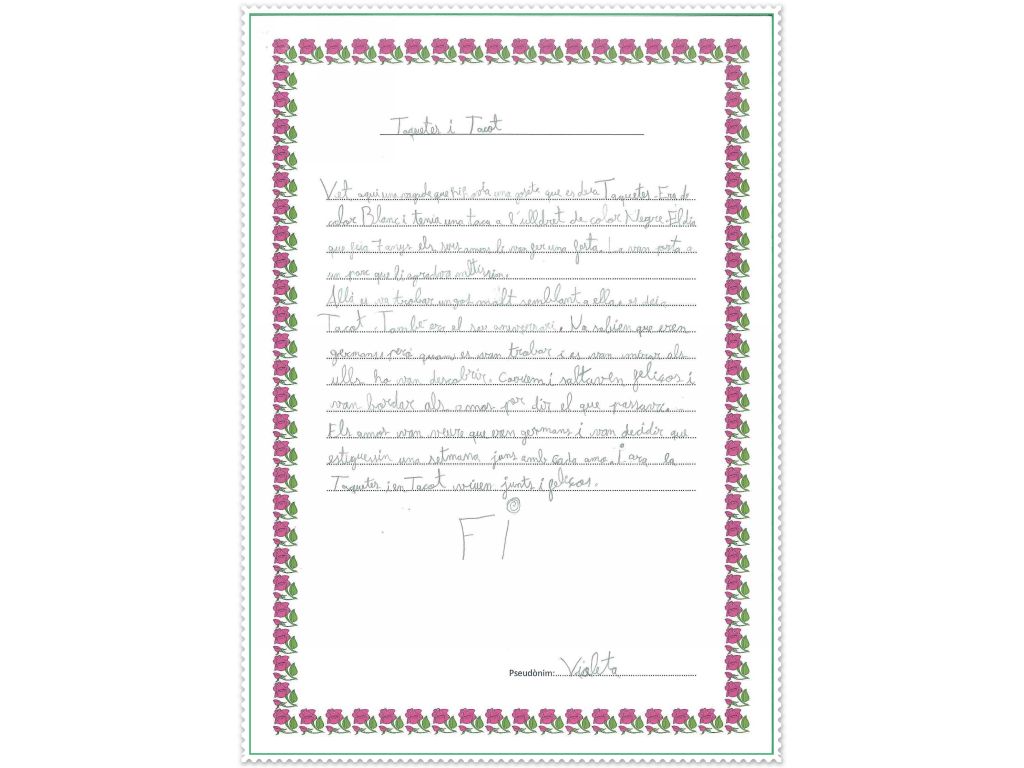 Taquetes i Tacot
Vet aquí una vegada que hi havia una goseta que es deia Taquetes. Era de
color Blanc i tenia una taca a l'ull dret de color Negre. El dia
que feia 7 anys els seus amos li van fer una festa. La van portar a
un parc que li agradava moltíssim.
Allà es va trobar un gos molt semblant a ella, es deia
Tacot. També era el seu aniversari. No sabien que eren
germans però quan es van trobar i es van mirar als
ulls ho van descobrir. Corrien i saltaven feliços i
van bordar als amos per dir el que passava.
Els amos van veure que eren germans i van decidir que
estiguessin una setmana junts amb cada amo. I ara la
Taquetes i en Tacot viuen junts i feliços.
FI
Pseudònim: Violeta